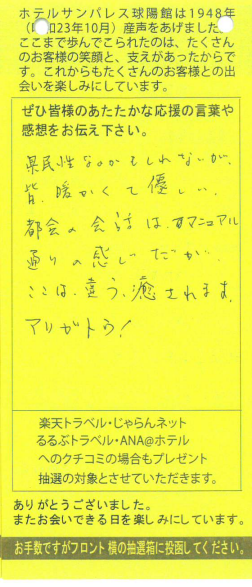 ホテルサンパレス球陽館は1948年
（昭和23年10月）産声をあげました。
ここまで歩んでこられたのは、たくさん
のお客様の笑顔と、支えがあったからで
す。これからもたくさんのお客様との出
会いを楽しみにしています。
ぜひ皆様のあたたかな応援の言葉や
感想をお伝え下さい。
県民性なのかもしれないが、
皆、暖かくて優しい。
都会の会話は、マニュアル
通りの感じだが、
ここは、違う、癒されます。
アリガトウ!
楽天トラベル・じゃらんネット
るるぶトラベル・ANA@ホテル
へのクチコミの場合もプレゼント
抽選の対象とさせていただきます。
ありがとうございました。
またお会いできる日を楽しみにしています。
お手数ですがフロント横の抽選箱に投函してください。